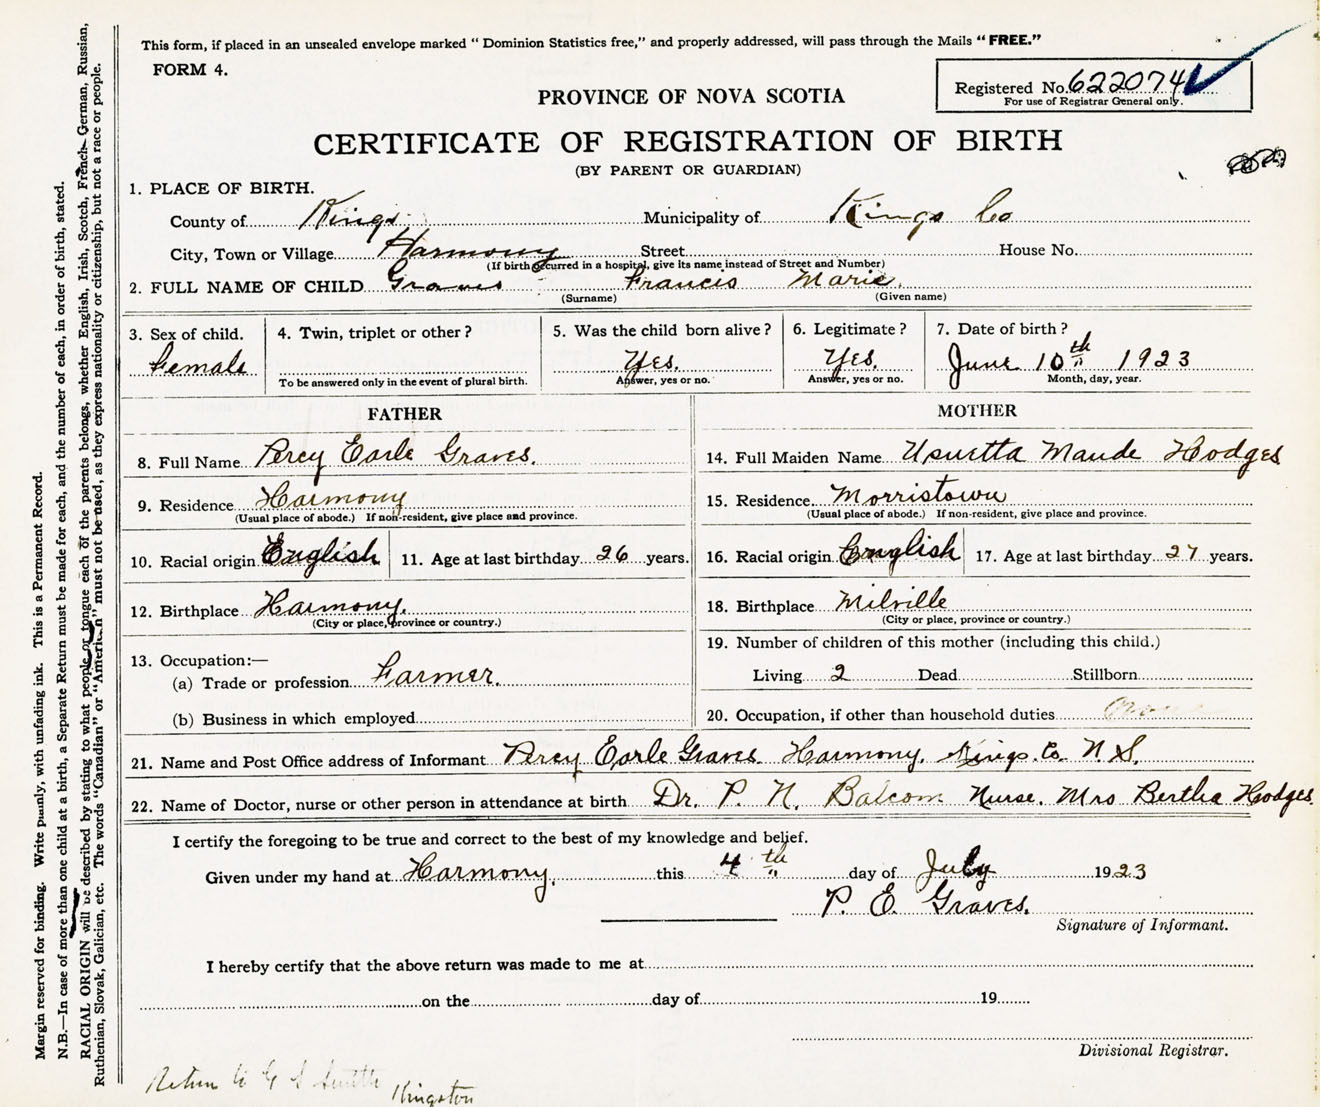 This form, if placed in an unsealed envelope marked “ Dominion Statistics free,” and properly addressed, will pass through the Mails “ FREE.”
FORM 4.
Registered No. 622074
For use of Registrar General only.
PROVINCE OF NOVA SCOTIA
CERTIFICATE OF REGISTRATION OF BIRTH
(BY PARENT OR GUARDIAN)
1. PLACE OF BIRTH.
County of Kings Municipality of Kings Co
City, Town or Village Harmony Street House No.
(If birth occurred in a hospital, give its name instead of Street and Number)
2. FULL NAME OF CHILD Graves Francis Marie
(Surname) (Given name)
3. Sex of child. 4. Twin, triplet or other ? 5. Was the child born alive ? 6. Legitimate ? 7. Date of birth ?
Female Yes. Yes. June 10th 1923
To be answered only in the event of plural birth. Answer, yes or no. Answer, yes or no. Month, day, year.
FATHER MOTHER
8. Full Name Percy Earle Graves. 14. Full Maiden Name Maude Hodges
9. Residence Harmony 15. Residence Morristown
(Usual place of abode.) If non-resident, give place and province. (Usual place of abode.) If non-resident, give place and province.
10. Racial origin English 11. Age at last birthday 26 years. 16. Racial origin English 17. Age at last birthday 27 years.
12. Birthplace Harmony. 18. Birthplace Milville
(City or place, province or country.) (City or place, province or country.)
13. Occupation:— 19. Number of children of this mother (including this child.)
(a) Trade or profession Farmer. Living 2 Dead Stillborn
(b) Business in which employed 20. Occupation, if other than household duties
21. Name and Post Office address of Informant Percy Earle Graves. Harmony, Kings. Co. N. S.
22. Name of Doctor, nurse or other person in attendance at birth Dr. P. N. Balcom Nurse. Mrs Bertha Hodges
I certify the foregoing to be true and correct to the best of my knowledge and belief.
Given under my hand at Harmony, this 4th day of July 1923
P. E. Graves.
Signature of Informant.
I hereby certify that the above return was made to me at
on the day of 19
Divisional Registrar.
Return to G S Smith Kingston
Margin reserved for binding. Write plainly, with unfading ink. This is a Permanent Record.
N.B.—In case of more than one child at a birth, a Separate Return must be made for each, and the number of each, in order of birth, stated.
RACIAL ORIGIN will be described by stating to what people or tongue each of the parents belongs, whether English, Irish, Scotch, French, German, Russian,
Ruthenian, Slovak, Galician, etc. The words “Canadian” or “American” must not be used, as they express nationality or citizenship, but not a race or people.